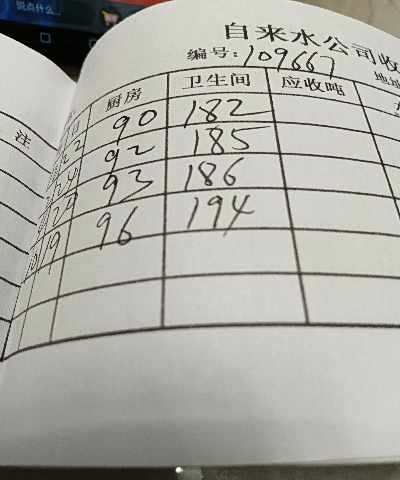 说点什么...
自来水公司收
编号:109667
注 日 厨房 卫生间 应收吨
22 90 182
92 185
24 93 186
29 96 194
19